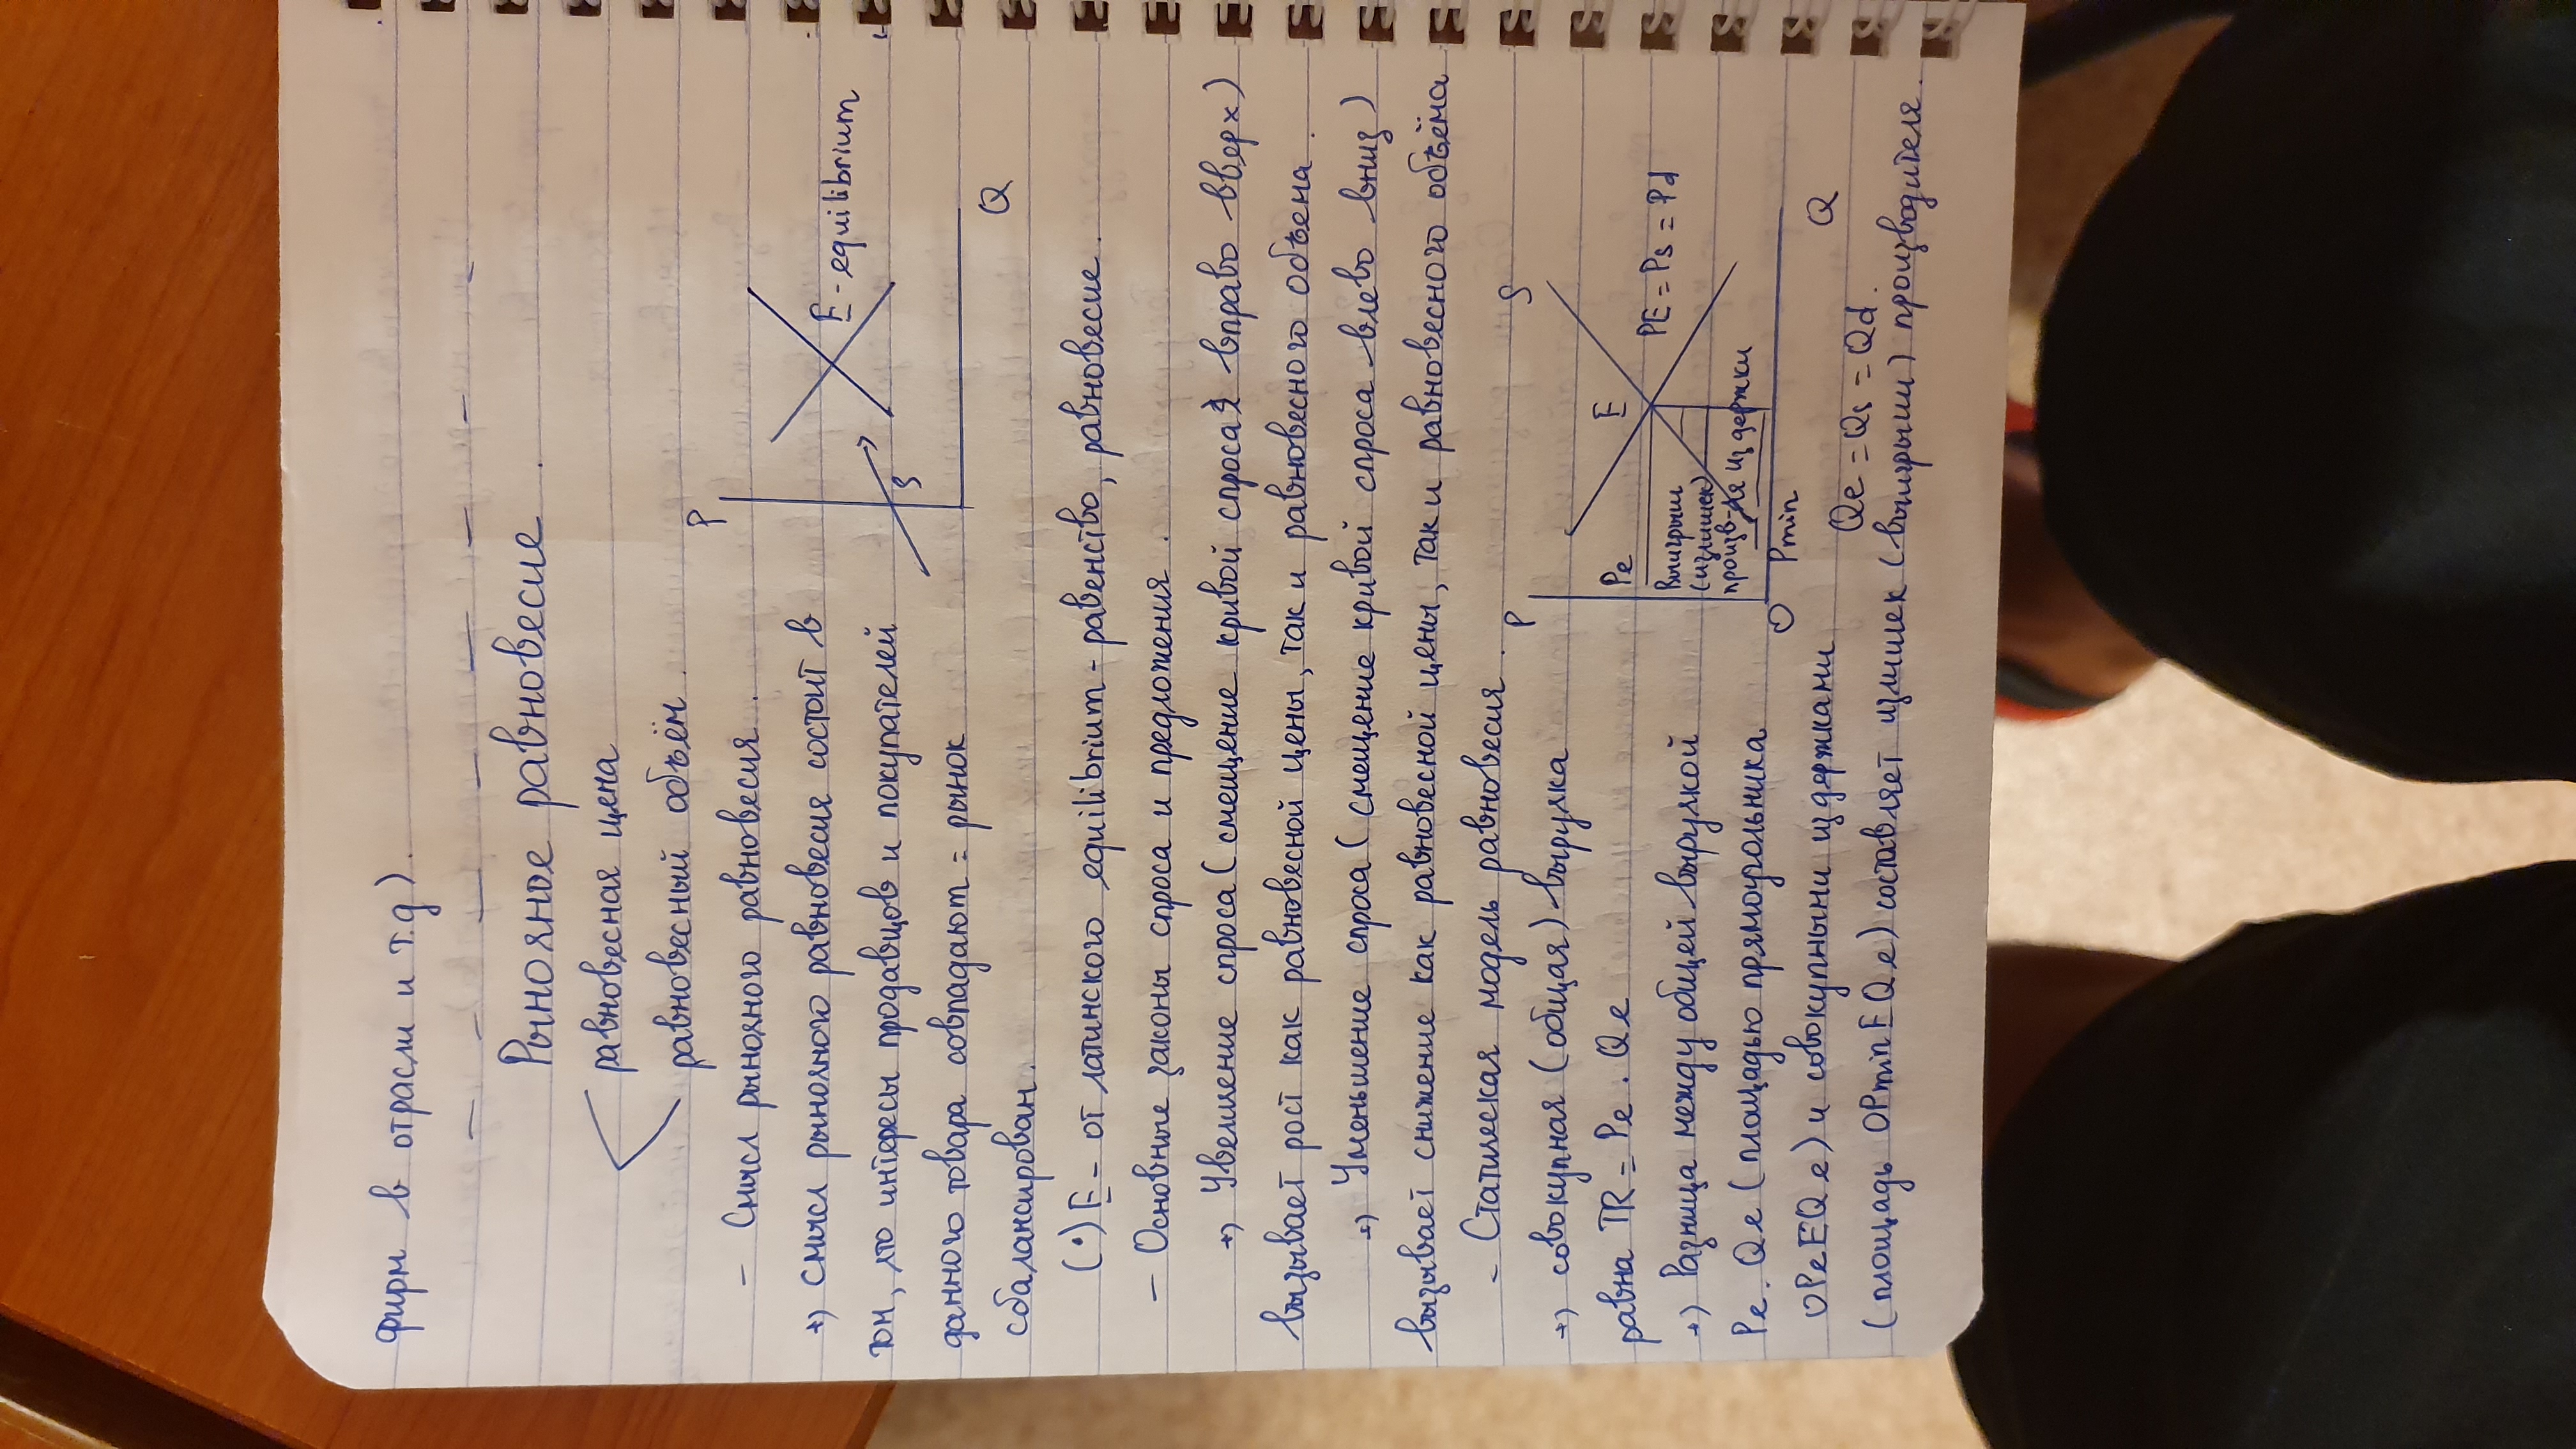 фирм в отрасли и т.д).
Рыночное равновесие.
равновесная цена
равновесный объём.
- Смысл рыночного равновесия.
P
→) смысл рыночного равновесия состоит в
E - equilibrium
том, что интересы продавцов и покупателей
S
данного товара совпадают = рынок
Q
сбалансирован.
(•) E - от латинского equilibrium - равенство, равновесие.
- Основные законы спроса и предложения.
→) Увеличение спроса (смещение кривой спроса вправо вверх)
вызывает рост как равновесной цены, так и равновесного объема.
→) Уменьшение спроса (смещение кривой спроса влево вниз)
вызывает снижение как равновесной цены, так и равновесного объёма
- Статическая модель равновесия.
P S
→) совокупная (общая) выручка
равна TR = Pe . Qe
Pe E
PE = Ps = Pd
→) Разница между общей выручкой
Выигрыш
(излишек)
произв-ля издержки
Pe . Qe (площадью прямоугольника
O Pmin
OPeEQe) и совокупными издержками
Q
Qe = Qs = Qd.
(площадь OPminEQe) составляет излишек (выигрыш) производителя.